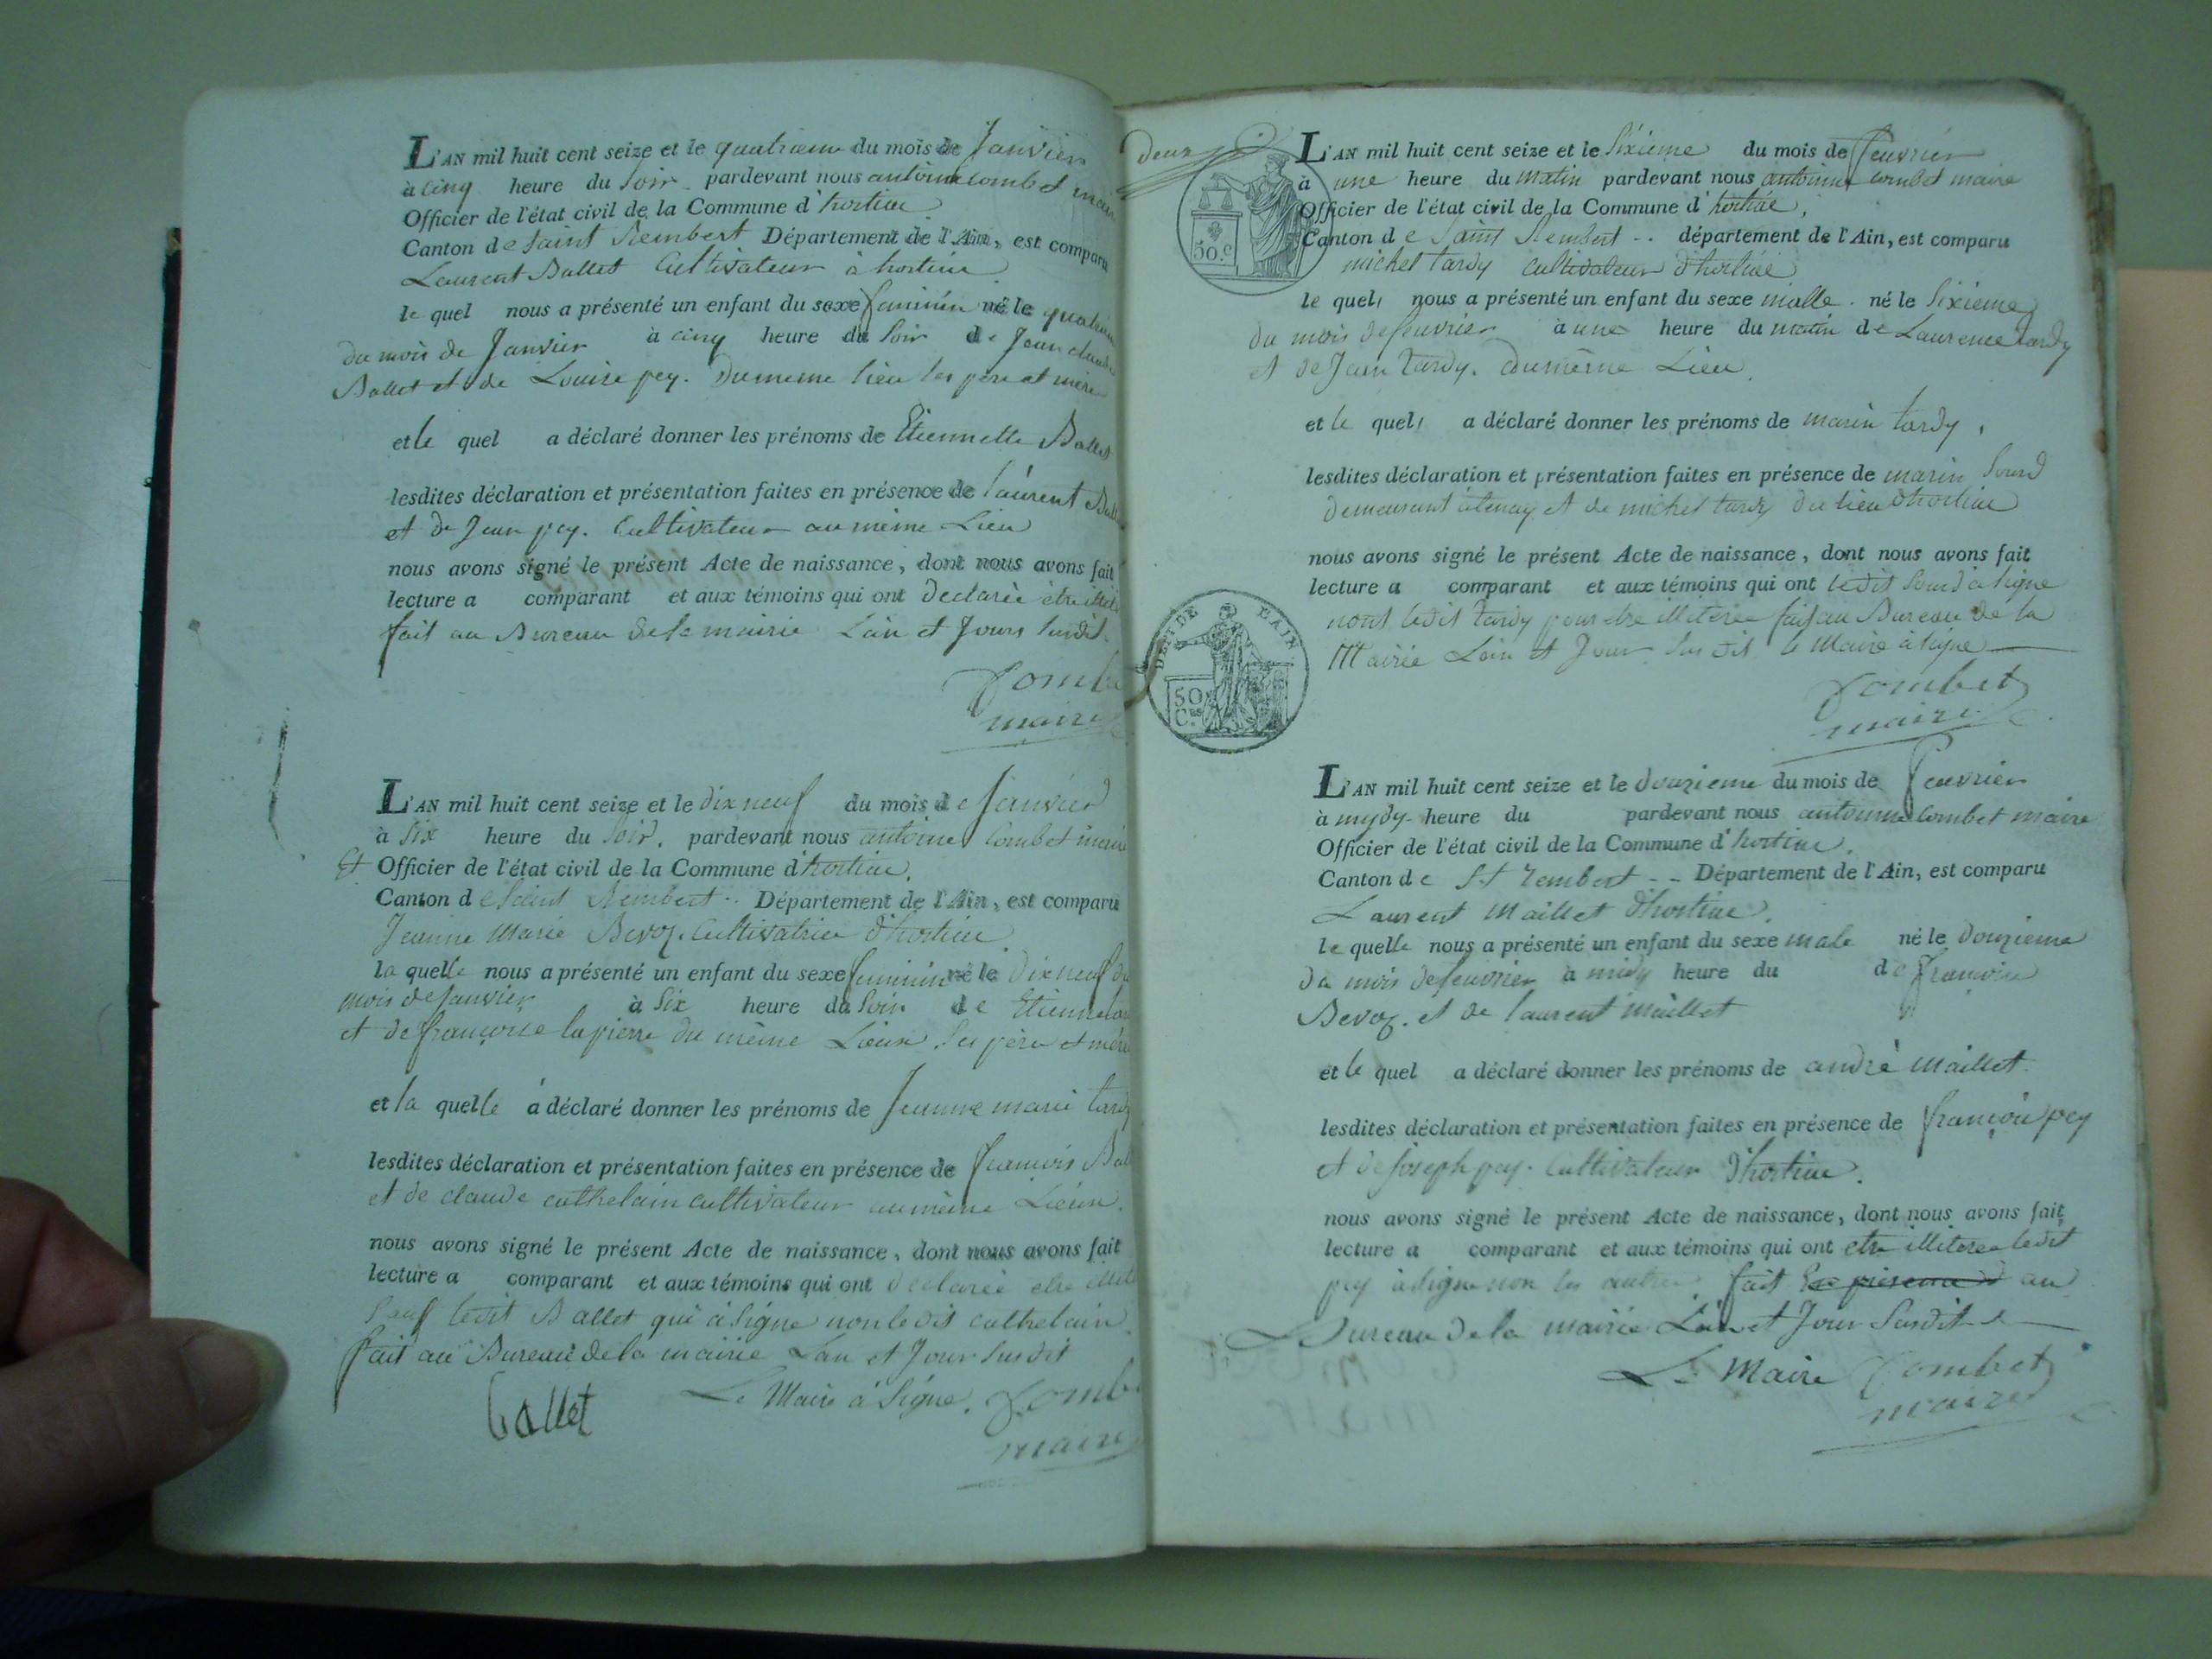 L'AN mil huit cent seize et le quatrieme du mois de Janvier
à cinq heure du Soir pardevant nous antoine Combet maire
Officier de l'état civil de la Commune d'hostiac
Canton de Saint Rembert Département de l'Ain, est comparu
Laurent Ballet Cultivateur à hostiac
le quel nous a présenté un enfant du sexe feminin né le
du mois de Janvier à cinq heure du Soir de Jean claude
Ballet et de Louise pey. Du meme lieu les père et mère
et le quel a déclaré donner les prénoms de Etiennette Ballet
lesdites déclaration et présentation faites en présence de laurent
et de Jean pey. Cultivateur au même Lieu
nous avons signé le présent Acte de naissance, dont nous avons fait
lecture a comparant et aux témoins qui ont Declarée être
fait au Bureau de la mairie Lan et Jour susdit.
Comb
maire
L'AN mil huit cent seize et le dix neuf du mois de Janvier
à Six heure du Soir. pardevant nous antoine Combet maire
Et Officier de l'état civil de la Commune d'hostiac.
Canton de Saint Rembert Département de l'Ain, est comparu
Jeanne Marie Bevoz. Cultivatrice d'hostiac
la quelle nous a présenté un enfant du sexe feminin né le dix neuf du
mois de Janvier à Six heure du Soir de Etienne
et de françoise lapierre du même Lieu Ses père et mère
et la quelle a déclaré donner les prénoms de Jeanne marie tardy
lesdites déclaration et présentation faites en présence de francois
et de claude cathelain cultivateur au même
nous avons signé le présent Acte de naissance, dont nous avons fait
lecture a comparant et aux témoins qui ont declarée etre
Sauf ledit Ballet qui à Signé non ledit cathelain
fait au Bureau de la mairie Lan et Jour Susdit
ballet Le Maire à Signé. Comb
maire
deux
50.c
L'AN mil huit cent seize et le Sixieme du mois de feuvrier
à une heure du matin pardevant nous antoinne Combet maire
Officier de l'état civil de la Commune d'hostiac,
Canton de Saint Rembert département de l'Ain, est comparu
michel tardy cultivateur d'hostiac
le quel nous a présenté un enfant du sexe malle. né le Sixieme
du mois de feuvrier à une heure du matin de Laurence tardy
et de Jean tardy. du même Lieu
et le quel a déclaré donner les prénoms de marin tardy,
lesdites déclaration et présentation faites en présence de marin Sourd
demeurant à tenay et de michel tardy du lieu d'hostiac
nous avons signé le présent Acte de naissance, dont nous avons fait
lecture a comparant et aux témoins qui ont ledit Sourd à Signé
nont ledit tardy pour etre illiterée fait au Bureau de la
Mairie Lan et Jour Susdit le Maire à signé
Combet
maire
DÉP. DE L'AIN
50
C.es
L'AN mil huit cent seize et le douzieme du mois de feuvrier
à mydy heure du pardevant nous antoinne Combet maire
Officier de l'état civil de la Commune d'hostiac.
Canton de St rembert Département de l'Ain, est comparu
Laurent Maillet d'hostiac.
le quelle nous a présenté un enfant du sexe male né le Douzieme
du mois de feuvrier à midy heure du de françoise
Bevoz. et de laurent Maillet
et le quel a déclaré donner les prénoms de andré Maillet.
lesdites déclaration et présentation faites en présence de françois pey
et de Joseph pey. Cultivateur d'hostiac.
nous avons signé le présent Acte de naissance, dont nous avons fait
lecture a comparant et aux témoins qui ont etre illiteree ledit
pey à Signé non les autre. fait au
Bureau de la mairie Lan et Jour Susdit
Le Maire Combet
maire